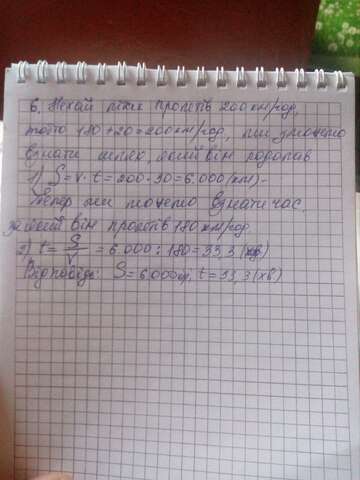 6. Нехай літак пролетів 200 км/год,
тобто 180+20=200 км/год, ми зможемо
взнати шлях, який він подолав
1) S=v·t=200·30=6.000 (км)-
Тепер ми можемо взнати час,
за який він пролетів 180 км/год.
2) t=S/v=6.000:180=33,3 (хв)
Відповідь: S=6000км, t=33,3(хв)